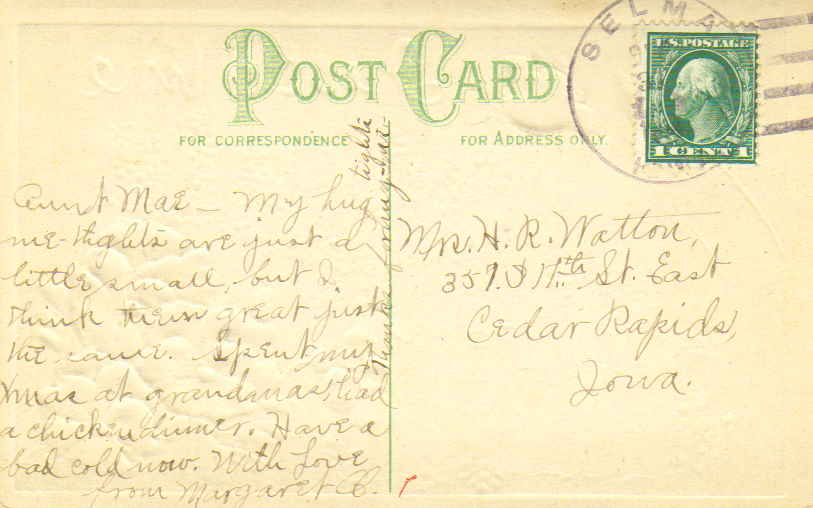 POST CARD
FOR CORRESPONDENCE
FOR ADDRESS ONLY.
SELMA
U.S. POSTAGE
1 CENT 1
Aunt Mae – My hug
me-tights are just a
little small, but I
think them great just
the same. Spent my
Xmas at grandmas, had
a chicken dinner. Have a
bad cold now. With Love
from Margaret C.
Thanks
tights
Mrs. H. R. Watton,
357 S 11th St. East
Cedar Rapids,
Iowa.